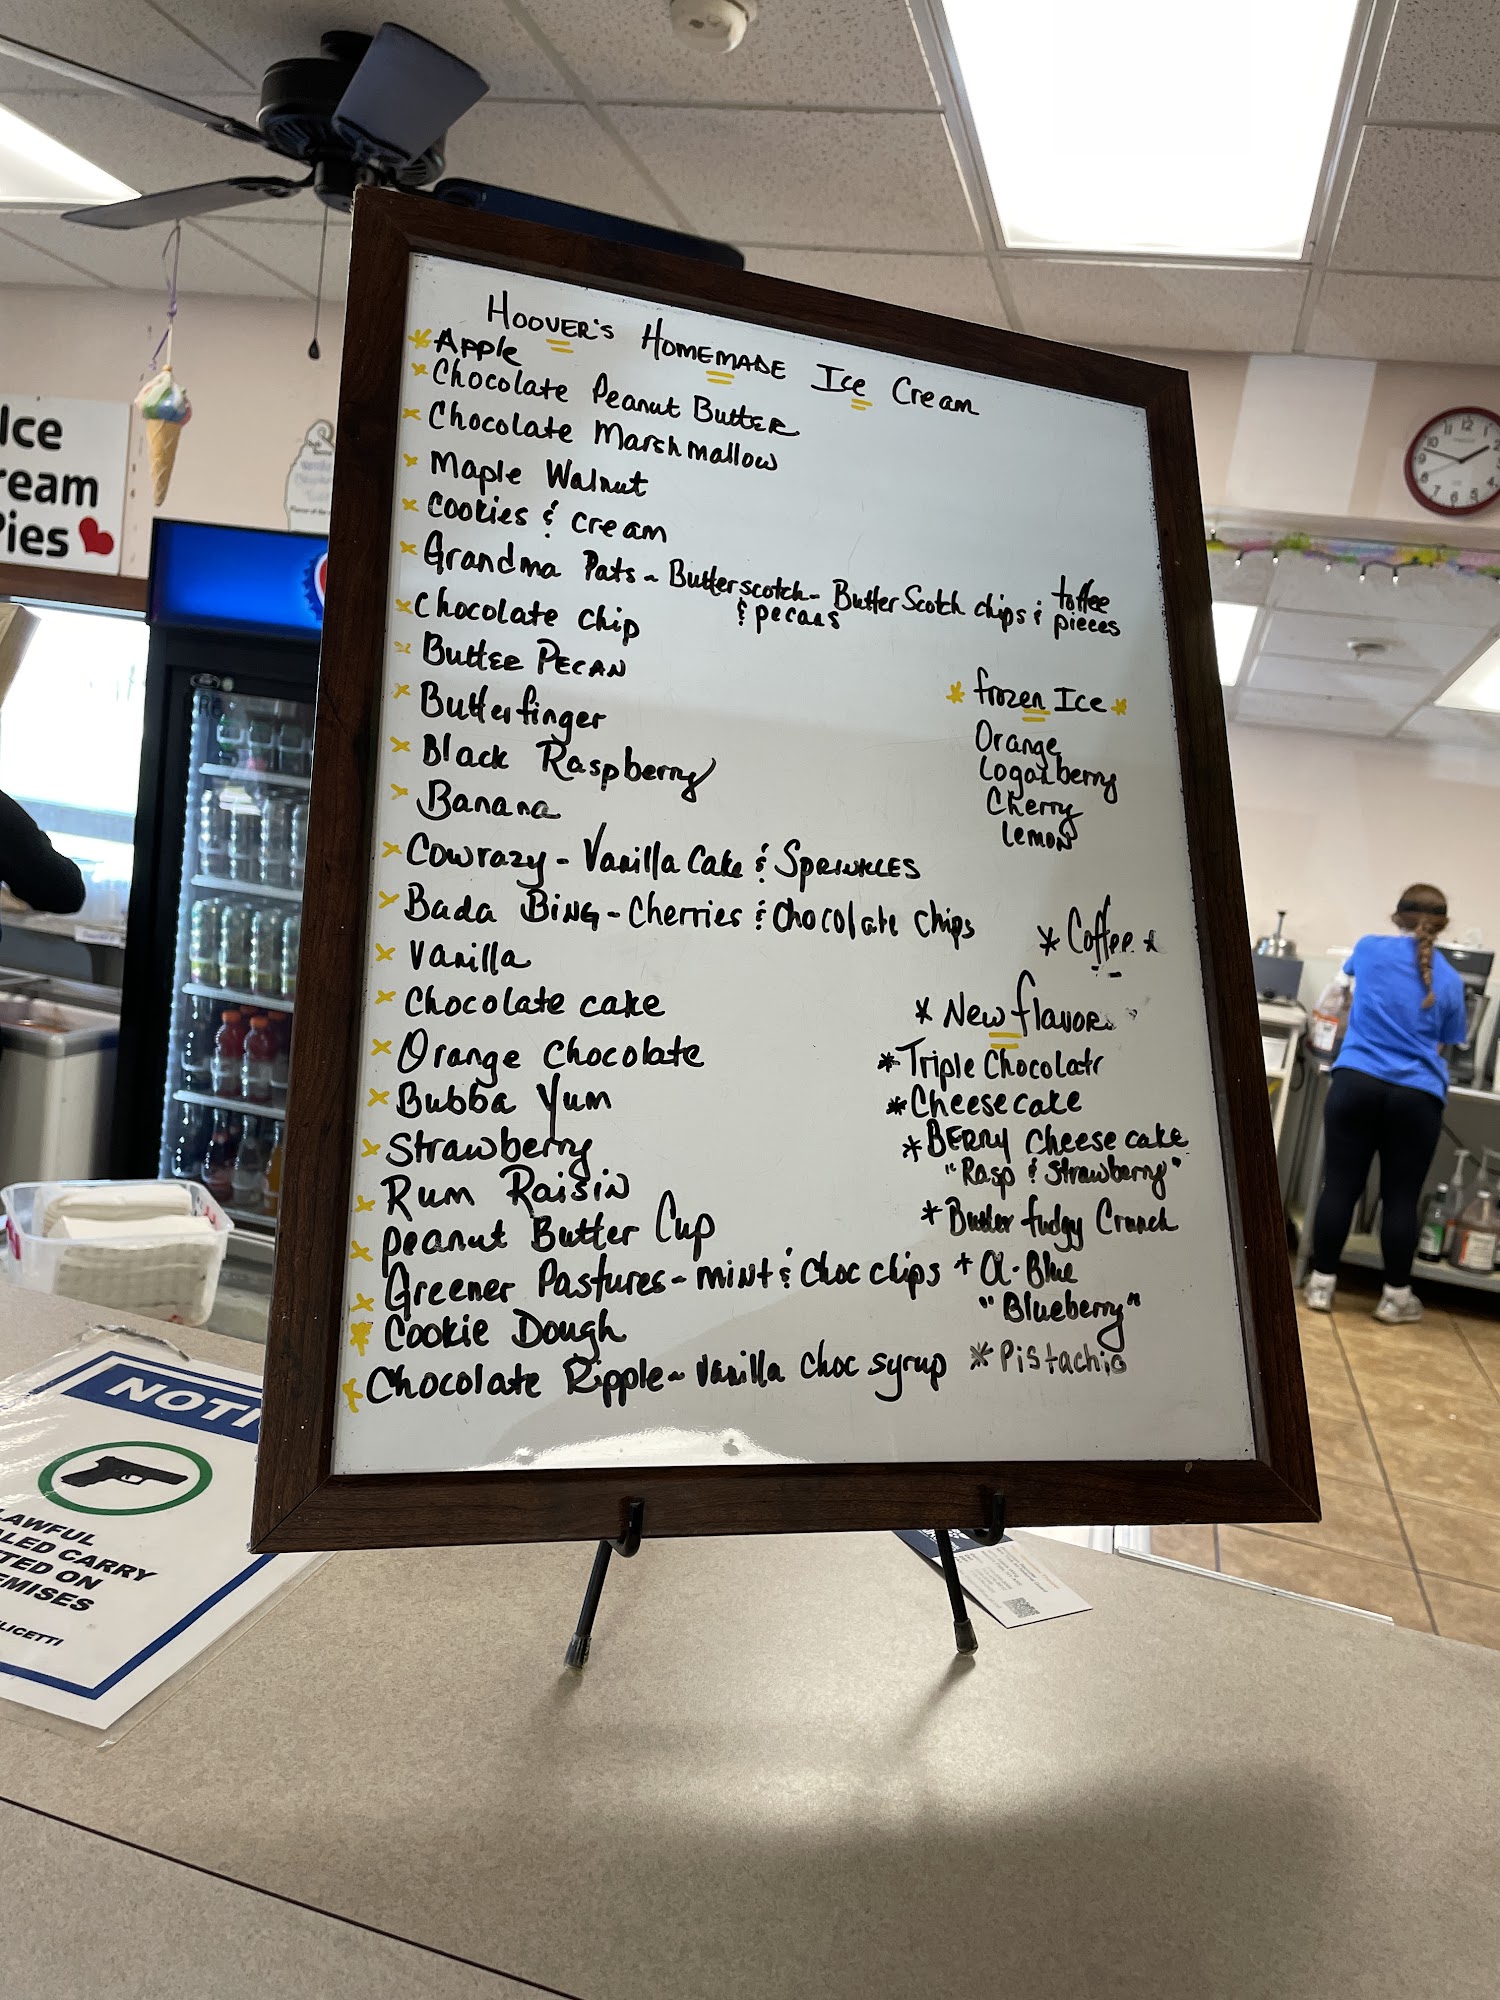 Hoover's Homemade Ice Cream
Apple
Chocolate Peanut Butter
Chocolate Marshmallow
Maple Walnut
Cookies & cream
Grandma Pats ~ Butterscotch - Butter Scotch chips & toffee pieces
& pecans
Chocolate chip
Butter Pecan
Butterfinger
Black Raspberry
Banana
Cowrazy - Vanilla Cake & Sprinkles
Bada Bing - Cherries & Chocolate chips
Vanilla
Chocolate cake
Orange Chocolate
Bubba Yum
Strawberry
Rum Raisin
peanut Butter Cup
Greener Pastures ~ mint & choc chips
Cookie Dough
Chocolate Ripple ~ vanilla choc syrup
* frozen Ice *
Orange
Loganberry
Cherry
Lemon
* Coffee *
* New flavors
* Triple Chocolate
* Cheesecake
* Berry Cheesecake
"Rasp & Strawberry"
* Butter fudgy Crunch
"Blueberry"
* Pistachio
Ice
ream
Pies
NOTI
LAWFUL
LED CARRY
TED ON
EMISES
LICETTI